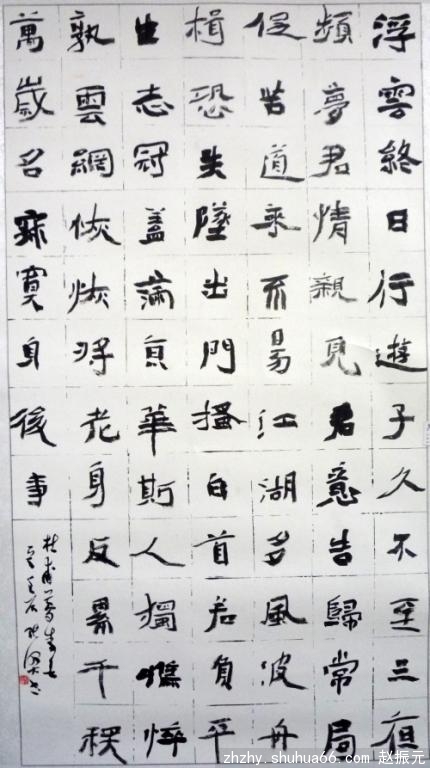 浮雲終日行遊子久不至三夜
頻夢君情親見君意告歸常局
促苦道來不易江湖多風波舟
楫恐失墜出門搔白首若負平
生志冠蓋滿京華斯人獨憔悴
孰雲網恢恢將老身反累千秋
萬歲名寂寞身後事
杜甫
zhzhy.shuhua66.com 赵振元